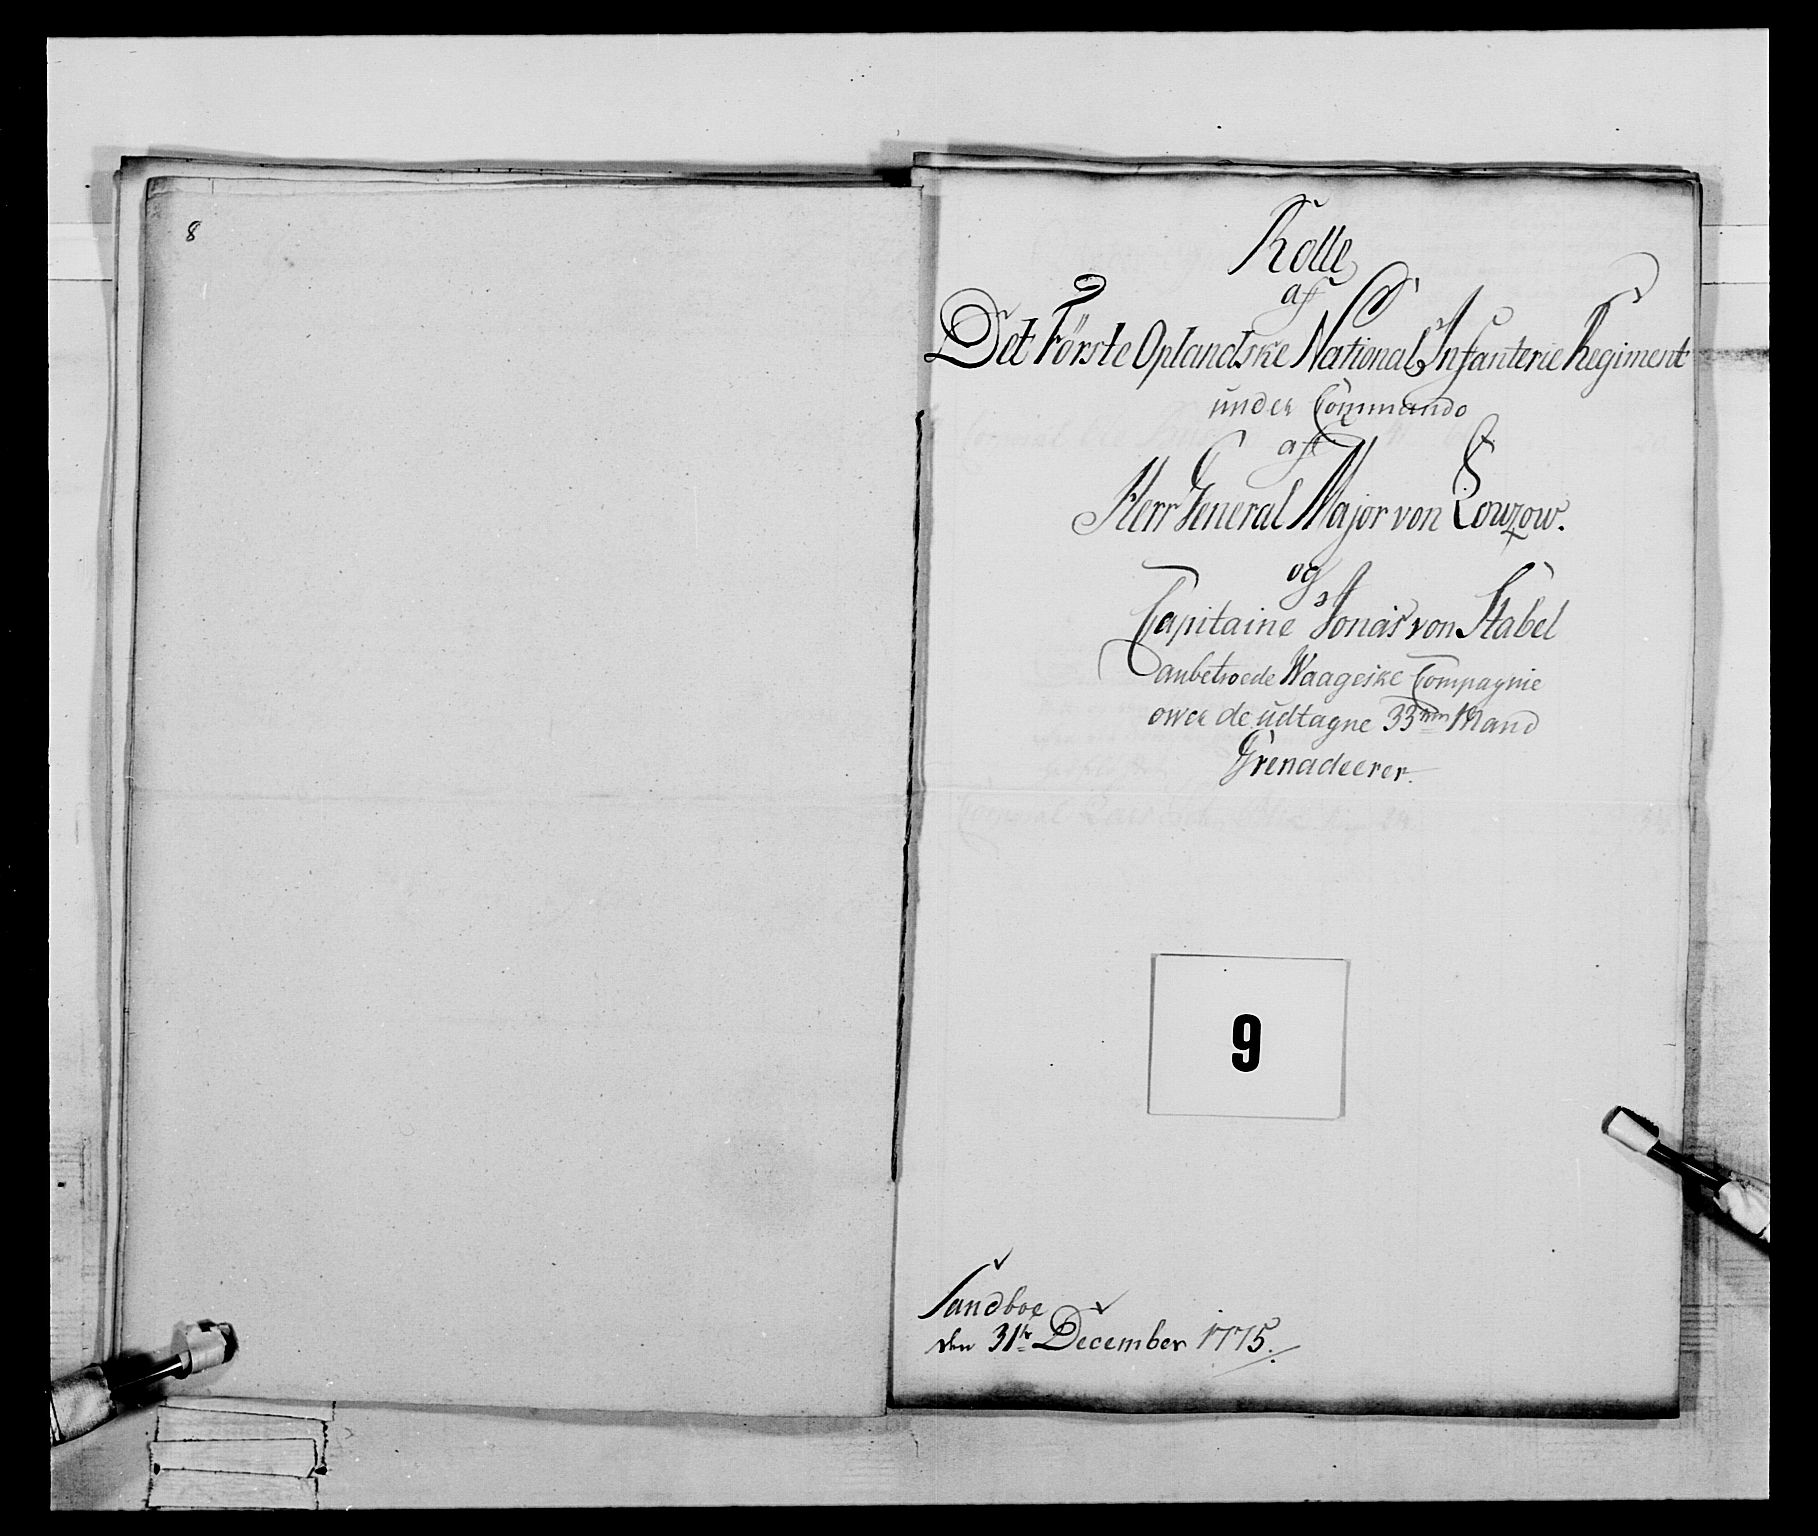 8
Rolle
af
Det Förste Oplandske National Infanterie Regiment
under Commando
af
Herr General Major von Lowzow.
og
Capitaine Jonas von Stabel
anbetroede Waageske Compagnie
over de udtagne 33 Mand
Grenadeerer.
9
Sandboe
den 31te December 1775.